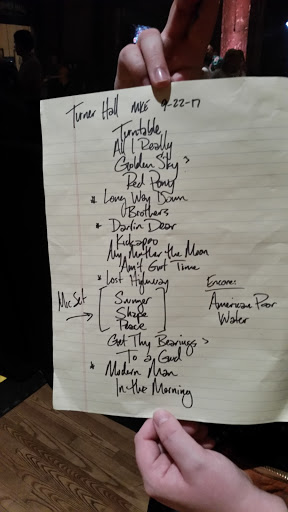 Turner Hall MKE 9-22-17
Turntable
All I Really
Golden Sky >
Red Pony
* Long Way Down
Brothers
* Darlin Dear
Kickapoo
My Mother the Moon
Ain't Got Time
* Lost Highway
Mic Set →
Summer
Shape
Peace
Get Thy Bearings >
To a God
* Modern Man
In the Morning
Encore:
American Poor
Water